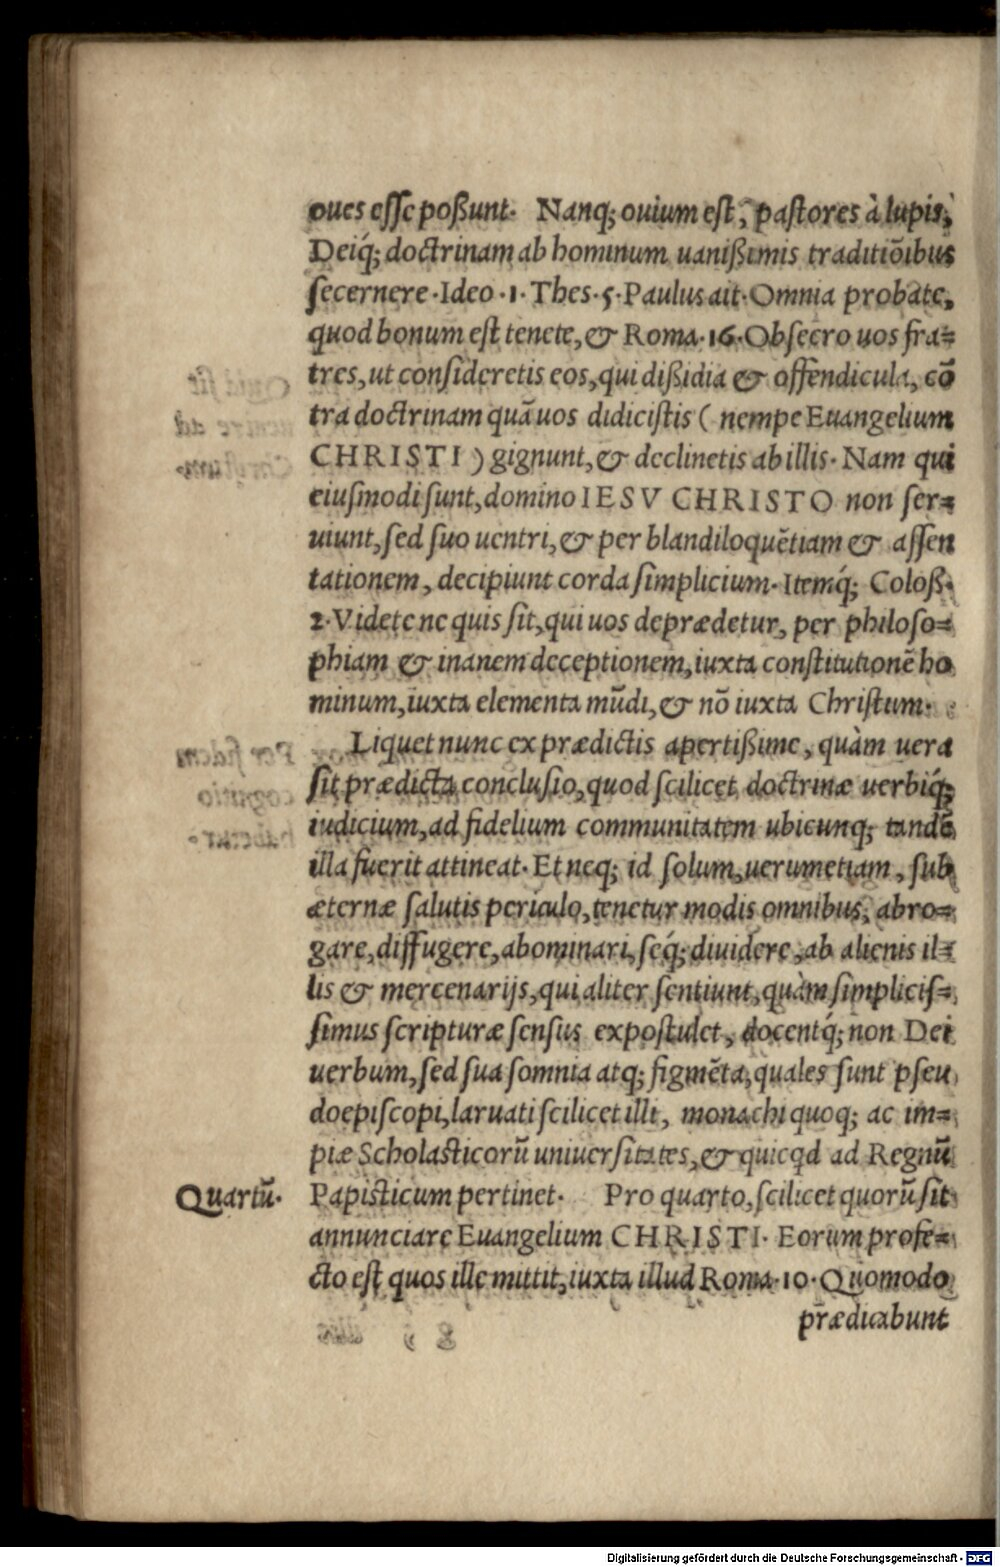 oues esse poßunt. Nanq; ouium est, pastores à lupis,
Deiq́; doctrinam ab hominum uanißimis traditiõibus
secernere. Ideo .1. Thes. 5. Paulus ait. Omnia probate,
quod bonum est tenete, & Roma. 16. Obsecro uos fra=
tres, ut consideretis eos, qui dißidia & offendicula, cõ
tra doctrinam quã uos didicistis ( nempe Euangelium
CHRISTI ) gignunt, & declinetis ab illis. Nam qui
eiusmodi sunt, domino IESV CHRISTO non ser=
uiunt, sed suo uentri, & per blandiloquẽtiam & assen
tationem, decipiunt corda simplicium. Itemq́; Coloß.
2. Videte ne quis sit, qui uos deprædetur, per philoso=
phiam & inanem deceptionem, iuxta constitutionẽ ho
minum, iuxta elementa mũdi, & nõ iuxta Christum.
Liquet nunc ex prædictis apertißime, quàm uera
sit prædicta conclusio, quod scilicet doctrinæ uerbiq́;
iudicium, ad fidelium communitatem ubicunq; tandẽ
illa fuerit attineat. Et neq; id solum, uerumetiam, sub
æternæ salutis periculo, tenetur modis omnibus, abro=
gare, diffugere, abominari, seq́; diuidere, ab alienis il=
lis & mercenarijs, qui aliter sentiunt, quàm simplicis=
simus scripturæ sensus expostulet, docentq́; non Dei
uerbum, sed sua somnia atq; figmẽta, quales sunt pseu
doepiscopi, laruati scilicet illi, monachi quoq; ac im=
piæ Scholasticorũ uniuersitates, & quicqd ad Regnũ
Quartũ. Papisticum pertinet. Pro quarto, scilicet quorũ sit
annunciare Euangelium CHRISTI. Eorum profe=
cto est quos ille mittit, iuxta illud Roma. 10. Quomodo
prædicabunt
Digitalisierung gefördert durch die Deutsche Forschungsgemeinschaft - DFG